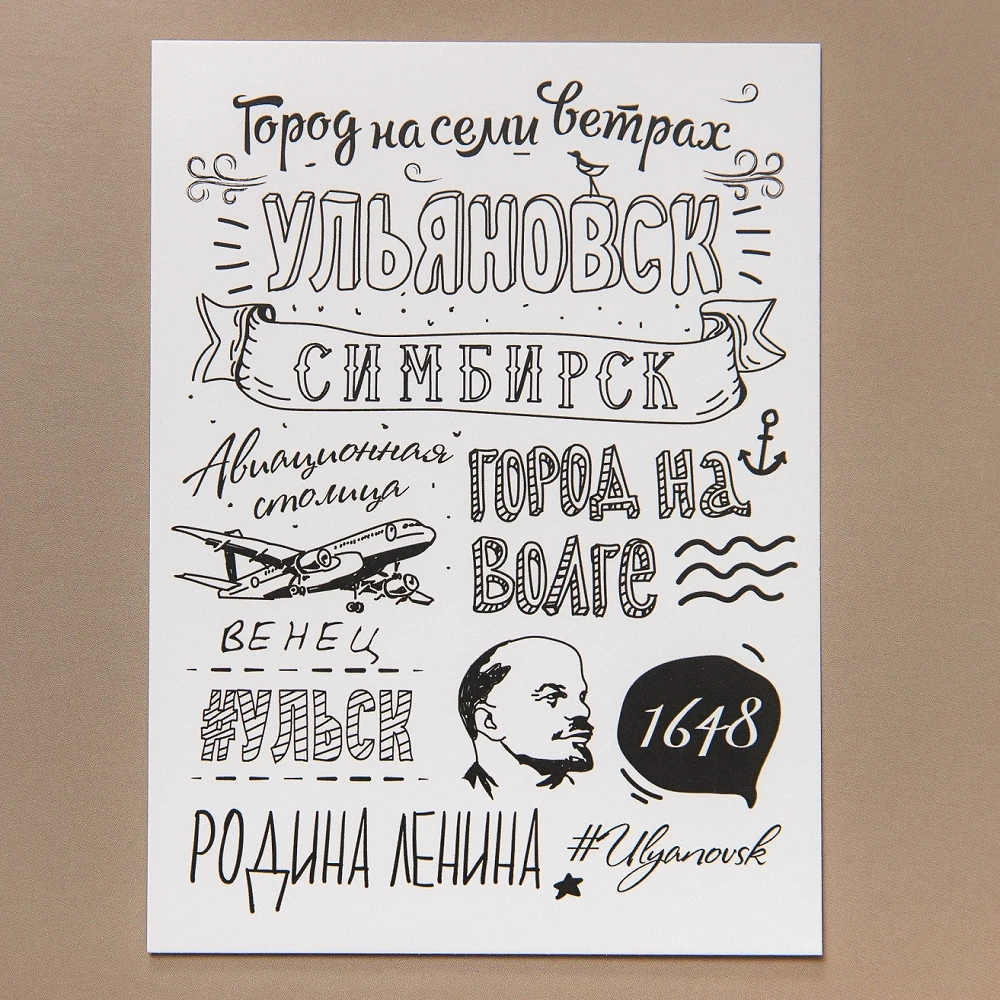 Город на семи ветрах
УЛЬЯНОВСК
СИМБИРСК
Авиационная
столица
ГОРОД На
ВОЛГе
ВЕНЕЦ
#УЛЬСК
1648
РОДИНА ЛЕНИНА
#Ulyanovsk